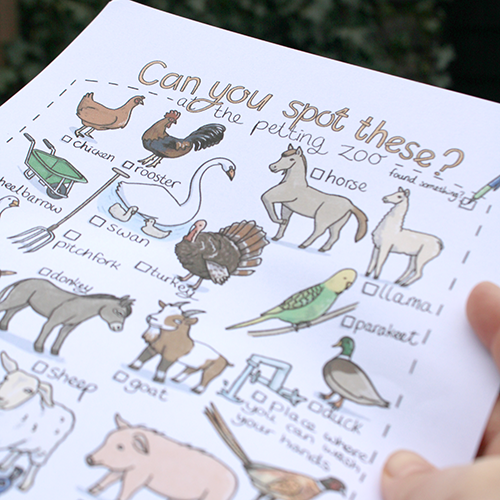 Can you spot these?
at the petting zoo
found something?
chicken
rooster
horse
wheelbarrow
swan
llama
pitchfork
turkey
parakeet
donkey
goat
duck
sheep
place where
you can wash
your hands